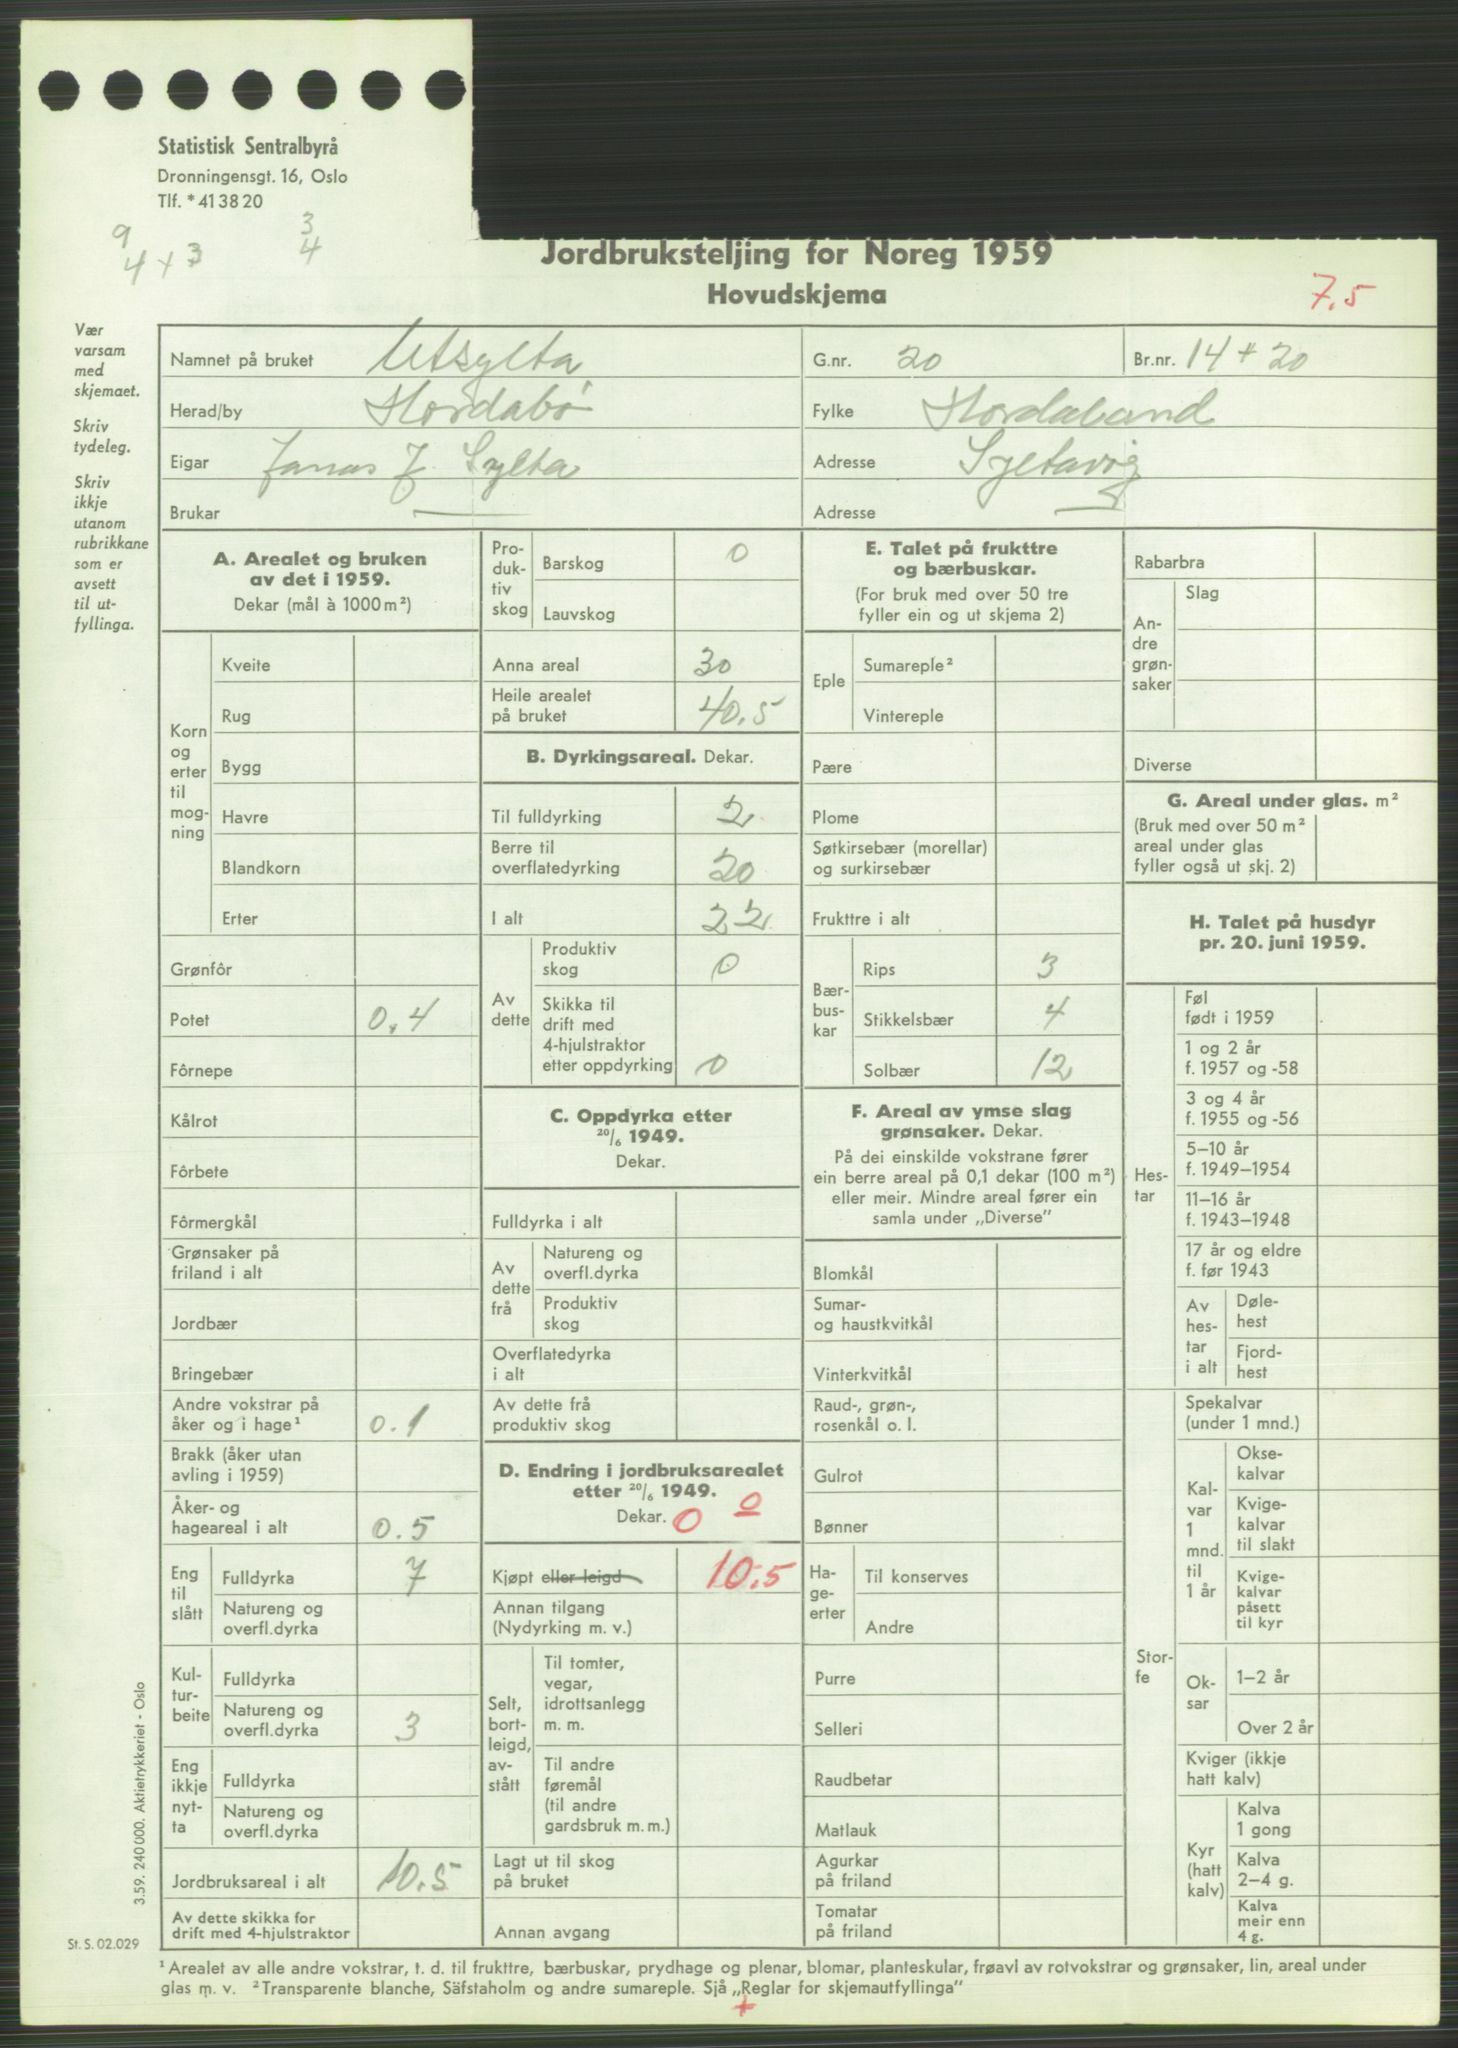 Statistisk Sentralbyrå
Dronningensgt. 16, Oslo
Tlf. * 41 38 20
9
4 + 3
3
4
Jordbruksteljing for Noreg 1959
Hovudskjema
7,5
Vær
varsam
med
skjemaet.
Skriv
tydeleg.
Skriv
ikkje
utanom
rubrikkane
som er
avsett
til ut-
fyllinga.
Namnet på bruket Utsylta G.nr. 20 Br.nr. 14 + 20
Herad/by Hordabø Fylke Hordaland
Eigar Jonas J. Sylta Adresse Syltavåg
Brukar Adresse
A. Arealet og bruken
av det i 1959.
Dekar (mål à 1000 m²)
Korn
og
erter
til
mog-
ning
Kveite
Rug
Bygg
Havre
Blandkorn
Erter
Grønfôr
Potet 0,4
Fôrnepe
Kålrot
Fôrbete
Fôrmergkål
Grønsaker på
friland i alt
Jordbær
Bringebær
Andre vokstrar på
åker og i hage¹ 0.1
Brakk (åker utan
avling i 1959)
Åker- og
hageareal i alt 0.5
Eng
til
slått
Fulldyrka 7
Natureng og
overfl.dyrka
Kul-
tur-
beite
Fulldyrka
Natureng og
overfl.dyrka 3
Eng
ikkje
nyt-
ta
Fulldyrka
Natureng og
overfl.dyrka
Jordbruksareal i alt 10.5
Av dette skikka for
drift med 4-hjulstraktor
Pro-
duk-
tiv
skog
Barskog 0
Lauvskog
Anna areal 30
Heile arealet
på bruket 40.5
B. Dyrkingsareal. Dekar.
Til fulldyrking 2
Berre til
overflatedyrking 20
I alt 22
Av
dette
Produktiv
skog 0
Skikka til
drift med
4-hjulstraktor
etter oppdyrking 0
C. Oppdyrka etter
20/6 1949.
Dekar.
Fulldyrka i alt
Av
dette
frå
Natureng og
overfl.dyrka
Produktiv
skog
Overflatedyrka
i alt
Av dette frå
produktiv skog
D. Endring i jordbruksarealet
etter 20/6 1949.
Dekar. 0 0
Kjøpt eller leigd 10.5
Annan tilgang
(Nydyrking m. v.)
Selt,
bort-
leigd,
av-
stått
Til tomter,
vegar,
idrottsanlegg
m. m.
Til andre
føremål
(til andre
gardsbruk m. m.)
Lagt ut til skog
på bruket
Annan avgang
E. Talet på frukttre
og bærbuskar.
(For bruk med over 50 tre
fyller ein og ut skjema 2)
Eple
Sumareple²
Vintereple
Pære
Plome
Søtkirsebær (morellar)
og surkirsebær
Frukttre i alt
Bær-
bus-
kar
Rips 3
Stikkelsbær 4
Solbær 12
F. Areal av ymse slag
grønsaker. Dekar.
På dei einskilde vokstrane fører
ein berre areal på 0,1 dekar (100 m²)
eller meir. Mindre areal fører ein
samla under „Diverse”
Blomkål
Sumar-
og haustkvitkål
Vinterkvitkål
Raud-, grøn-,
rosenkål o. l.
Gulrot
Bønner
Ha-
ge-
erter
Til konserves
Andre
Purre
Selleri
Raudbetar
Matlauk
Agurkar
på friland
Tomatar
på friland
Rabarbra
An-
dre
grøn-
saker
Slag
Diverse
G. Areal under glas. m²
(Bruk med over 50 m²
areal under glas
fyller også ut skj. 2)
H. Talet på husdyr
pr. 20. juni 1959.
Hes-
tar
Føl
født i 1959
1 og 2 år
f. 1957 og -58
3 og 4 år
f. 1955 og -56
5–10 år
f. 1949–1954
11–16 år
f. 1943–1948
17 år og eldre
f. før 1943
Av
hes-
tar
i alt
Døle-
hest
Fjord-
hest
Stor-
fe
Spekalvar
(under 1 mnd.)
Kal-
var
1
mnd.
til
1 år
Okse-
kalvar
Kvige-
kalvar
til slakt
Kvige-
kalvar
påsett
til kyr
Ok-
sar
1–2 år
Over 2 år
Kviger (ikkje
hatt kalv)
Kyr
(hatt
kalv)
Kalva
1 gong
Kalva
2–4 g.
Kalva
meir enn
4 g.
3.59. 240 000. Aktietrykkeriet - Oslo
St. S. 02.029
¹ Arealet av alle andre vokstrar, t. d. til frukttre, bærbuskar, prydhage og plenar, blomar, planteskular, frøavl av rotvokstrar og grønsaker, lin, areal under
glas m. v. ² Transparente blanche, Säfstaholm og andre sumareple. Sjå „Reglar for skjemautfyllinga”
+